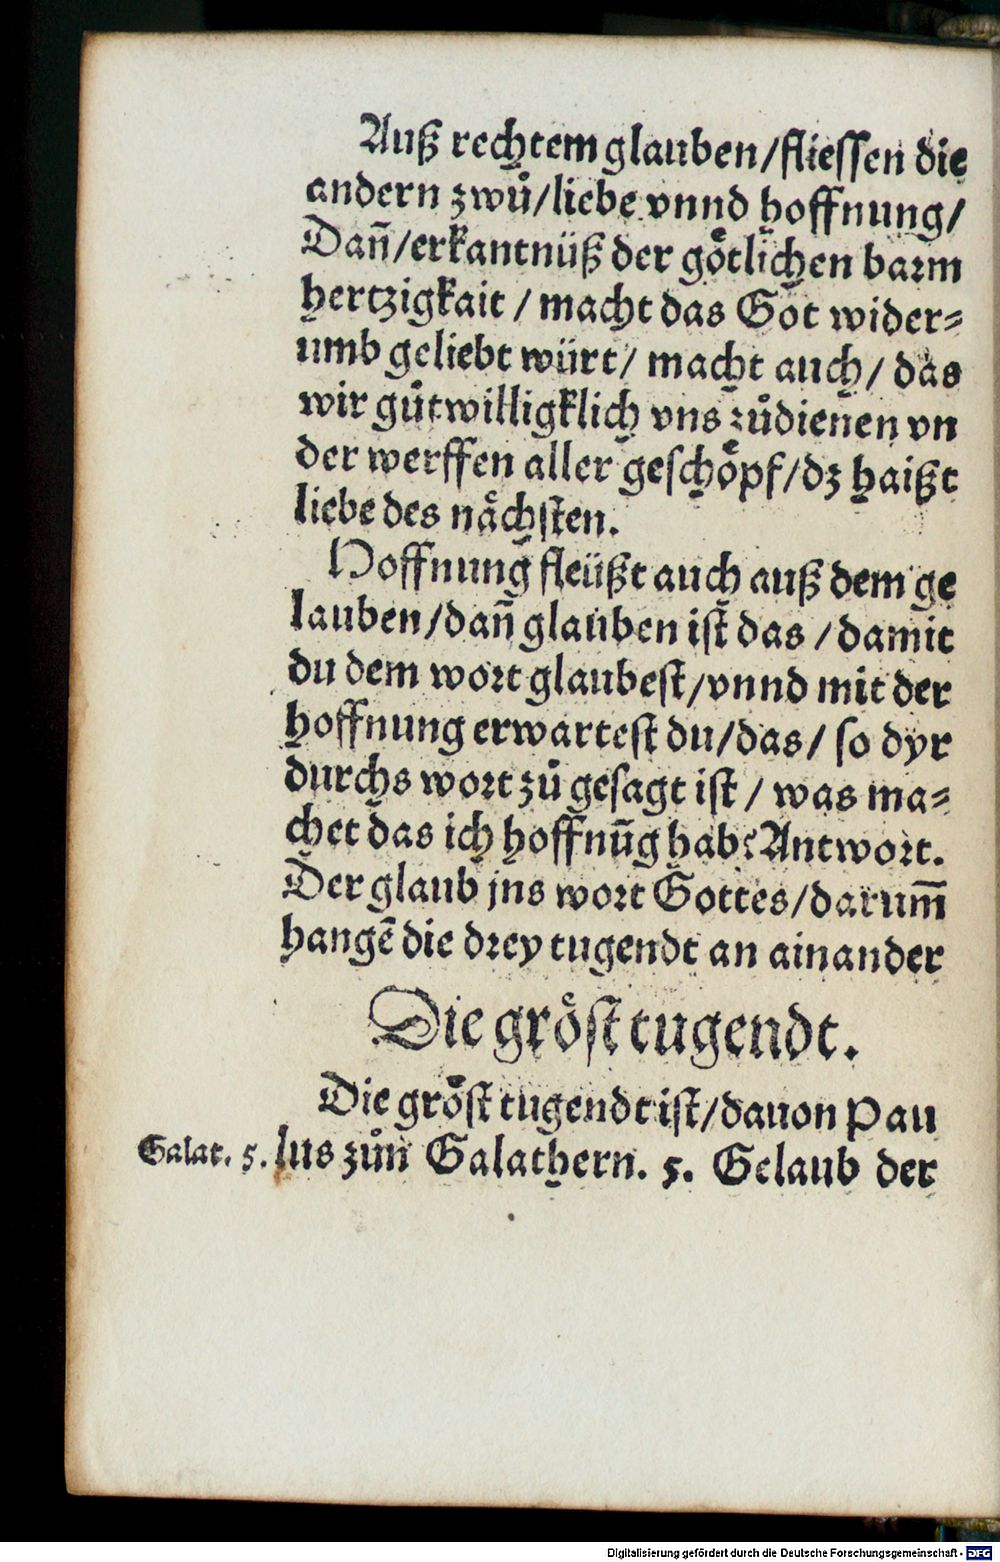 Auß rechtem glauben/fliessen die
andern zwů/liebe vnnd hoffnung/
Dañ/erkantnüß der goͤtlichen barm
hertzigkait / macht das Got wider⸗
umb geliebt würt/ macht auch/ das
wir gůtwilligklich vns zůdienen vn
der werffen aller geschoͤpf/dz haißt
liebe des naͤchsten.
Hoffnung fleüßt auch auß dem ge
lauben/dañ glauben ist das /damit
du dem wort glaubest/vnnd mit der
hoffnung erwartest du/das/ so dyr
durchs wort zů gesagt ist / was ma⸗
chet das ich hoffnūg hab? Antwort.
Der glaub jns wort Gottes/darum̄
hangē die drey tugendt an ainander
Die groͤst tugendt.
Die groͤst tugendt ist/dauon Pau
Galat. 5. lus zůn Galathern. 5. Gelaub der
Digitalisierung gefördert durch die Deutsche Forschungsgemeinschaft - DFG